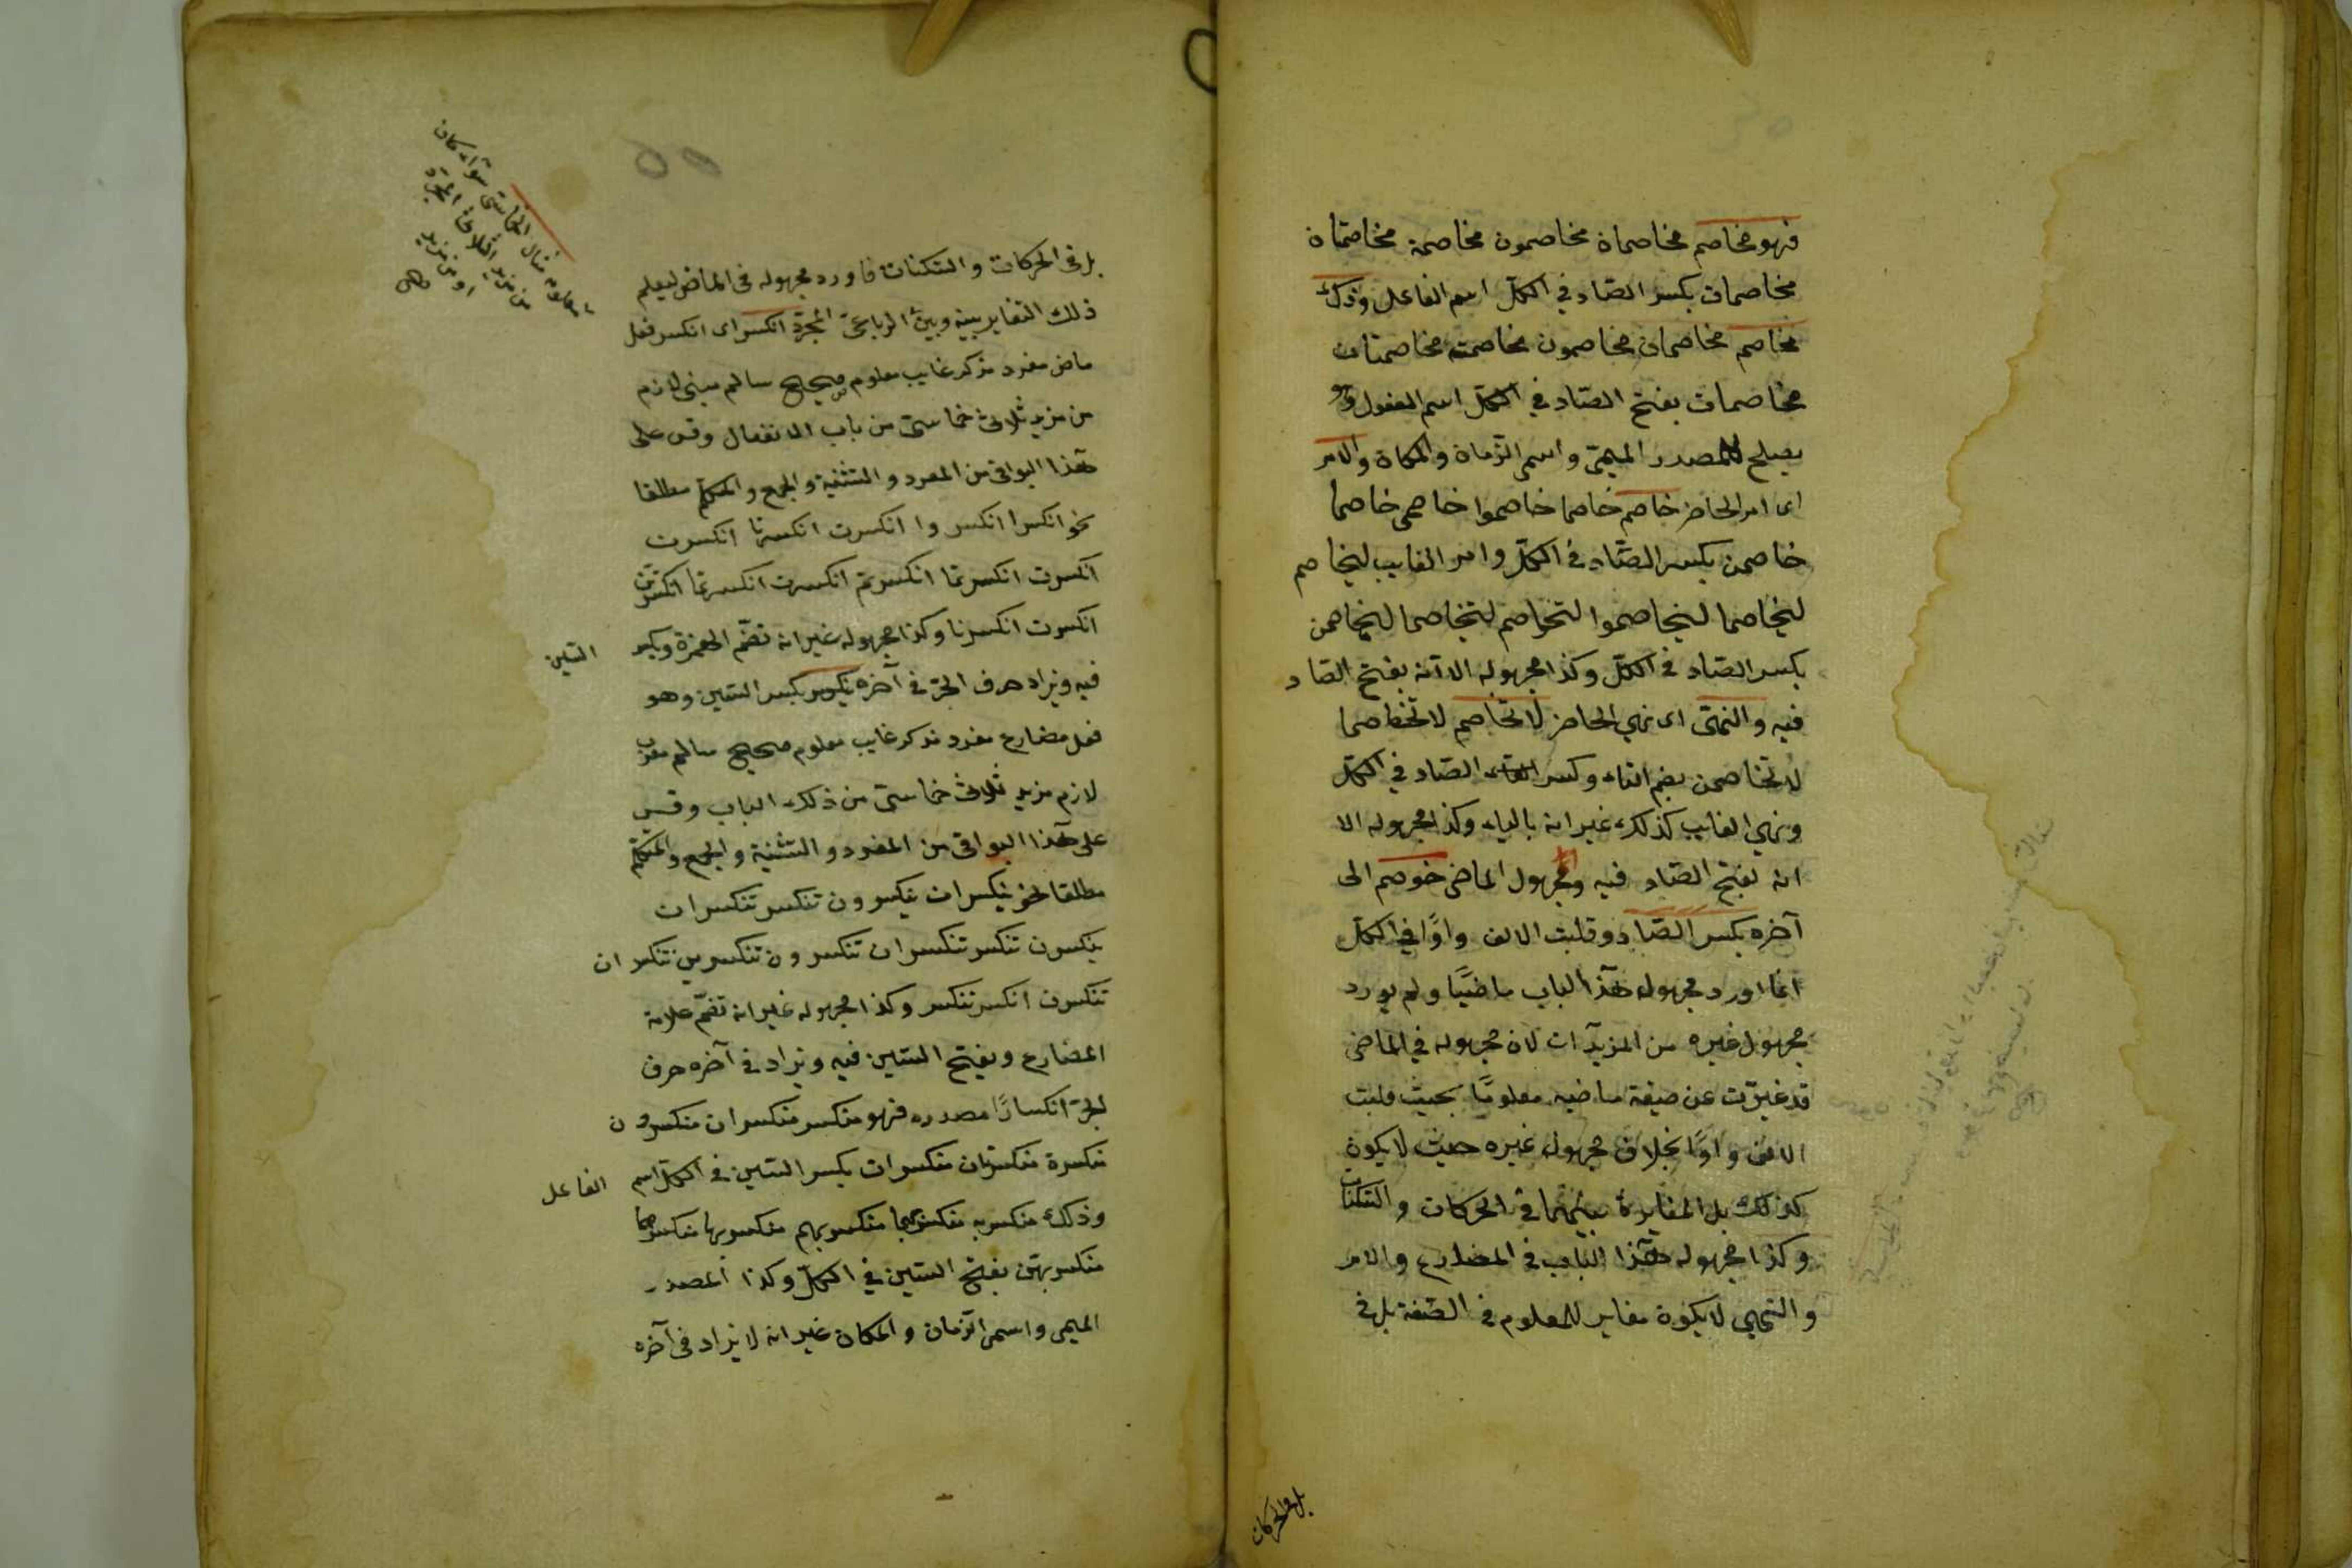 فهو مخاصم مخاصماة مخاصمون مخاصمة مخاصمتاة
مخاصمات بكسر الصاد في الكلّ اسم الفاعل وذلك
مخاصم مخاصمان مخاصمون مخاصمة مخاصمتان
مخاصمات بفتح الصّاد في الكلّ اسم المفعول وهو
يصلح للمصدر الميمىّ واسمى الزّماة والمكاة والامر
اى امر الحاضر خاصم خاصما خاصموا خاصمى خاصما
خاصمن بكسر الصّاد فى الكلّ وامر الغايب ليخاصم
ليخاصما ليخاصموا لتخاصم لتخاصما ليخاصمن
بكسر الصّاد فى الكلّ وكذا مجهوله الا انّه بفتح الصّاد
فيه والنهى اى نهي الحاضر لا تخاصم لا تخاصما
لا تخاصمن بضم التاء وكسر الصّاد في الكلّ
ونهي الغايب كذلك غير انه بالياء وكذا مجهوله الا
انه بفتح الصّاد فيه ومجهول الماضى خوصم الى
آخره بكسر الصّاد وقلبت الالف واوًا في الكلّ
انما اورد مجهول هذا الباب ماضيًا ولم يورد
مجهول غيره من المزيدات لان مجهوله في الماضى
قد غيّرت عن صيغة ماضيه معلومًا بحيث قلبت
الالف واوًا بخلاف مجهول غيره حيث لا يكون
كذلك بل المغايرة بينهما فى الحركات والسّكنات
وكذا مجهوله هذا الباب فى المضارع والامر
والنهي لا يكون مغاير للمعلوم فى الصّيغة بل فى
بل فى الحركات
بل فى الحركات والسّكنات فاورد مجهوله فى الماضى ليعلم
ذلك التغاير بينه وبين الرباعىّ المجرّد انكسر اى انكسر فعل
ماض مفرد مذكر غايب معلوم صحيح سالم مبنى لازم
من مزيد ثلاثى خماسىّ من باب الانفعال وقس على
هذا البواقى من المفرد والتثنية والجمع والمتكلّم مطلقا
نحو انكسرا انكسروا انكسرت انكسرتا انكسرت
انكسرت انكسرتما انكسرتم انكسرت انكسرتما انكسرتنّ
انكسرت انكسرنا وكذا مجهوله غير انه تضمّ الهمزة وبكسر
السّين
فيه ويزاد حرف الجرّ فى آخره ينكسر بكسر السّين وهو
فعل مضارع مفرد مذكر غايب معلوم صحيح سالم معرب
لازم مزيد ثلاثى خماسىّ من ذلك الباب وقس
على هذا البواقى من المفرد والتّثنية والجمع والمتكلّم
مطلقا نحو ينكسران ينكسرون تنكسر تنكسران
ينكسرن تنكسر تنكسران تنكسرون تنكسرين تنكسران
تنكسرن انكسر ننكسر وكذا مجهوله غير انه تضمّ علامة
المضارع ويفتح السّين فيه ويزاد فى آخره حرف
الجرّ انكسارًا مصدره فهو منكسر منكسران منكسرون
منكسرة منكسرتان منكسرات بكسر السّين فى الكلّ اسم
الفاعل
وذلك منكسر به منكسر بهما منكسر بهم منكسر بها منكسر بهما
منكسر بهنّ بفتح السّين في الكلّ وكذا المصدر
الميمى واسمى الزّمان والمكان غير انه لا يزاد فى آخره